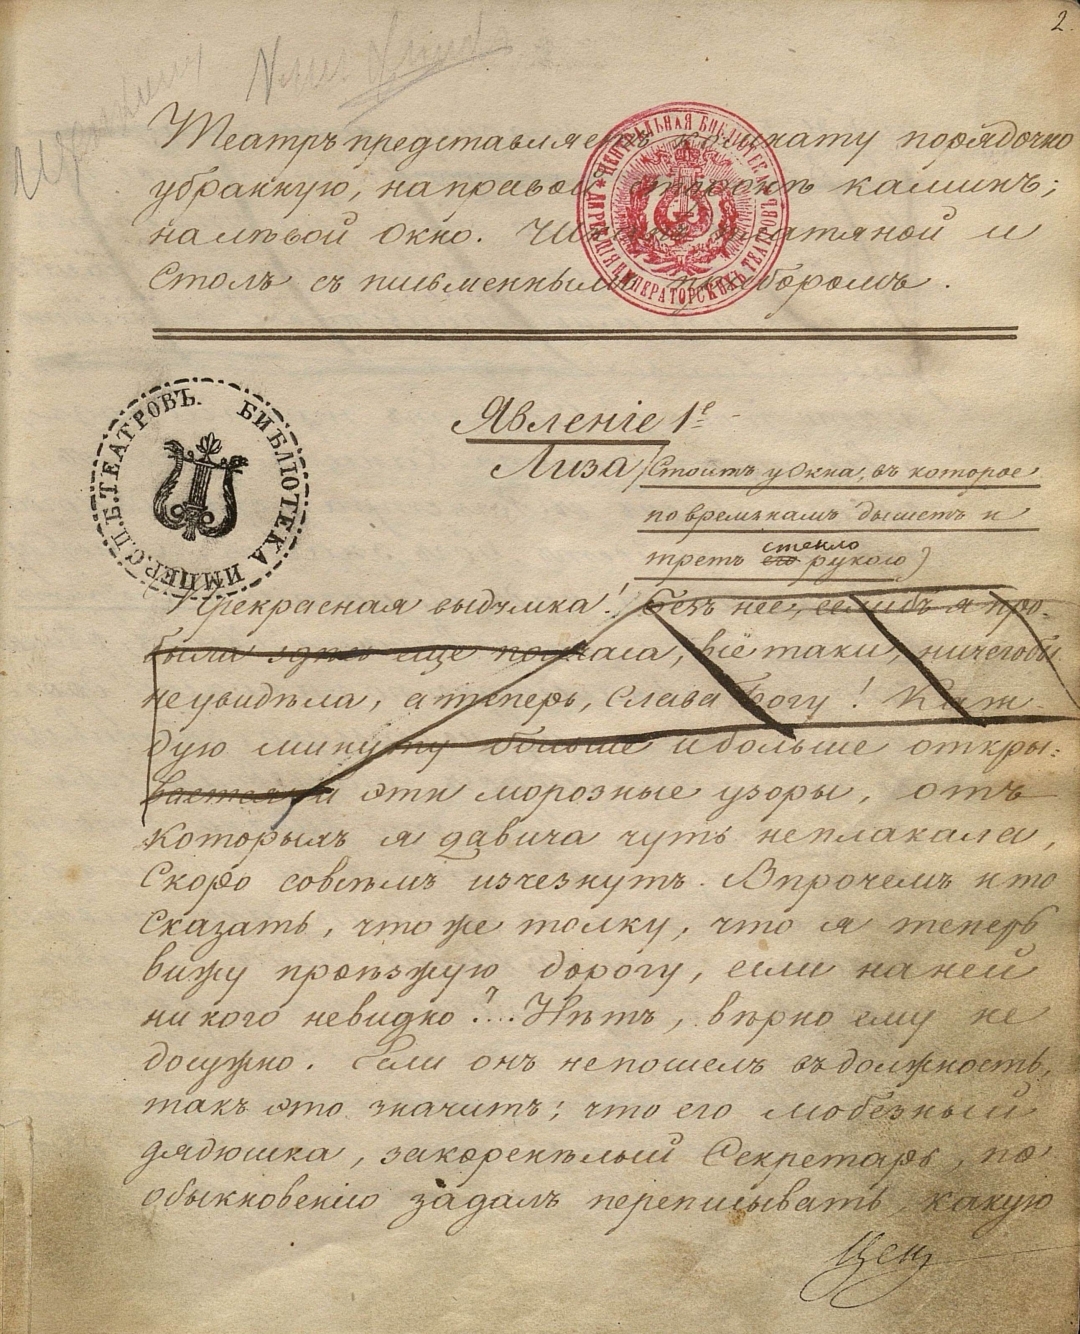 2
Театръ представляетъ комнату порядочно
убранную, направой сторонѣ каминъ;
налѣвой окно.
столъ съ письменнымъ приборомъ.
ЦЕНТРАЛЬНАЯ БИБЛІОТЕКА ИМПЕРАТОРСКИХЪ ТЕАТРОВЪ
БИБЛІОТЕКА ИМПЕР. С.П.Б. ТЕАТРОВЪ.
Явленіе 1е
Лиза (стоитъ у окна, въ которое
по временамъ дышетъ и
стекло
третъ его рукою)
Прекрасная выдумка! Безъ нее, еслибъ я про-
была здѣсь еще полчаса, всё таки, ничегобы
неувидѣла, а теперь, слава Богу! Каж-
дую минуту больше и больше откры-
вается и эти морозные узоры, отъ
которыхъ я давича чуть неплакала,
скоро совсѣмъ изчезнутъ. Впрочемъ и то
сказать, что же толку, что я теперь
вижу проѣзжую дорогу, если на ней
ни кого невидно?... Нѣтъ, вѣрно ему не
досужно. Если онъ непошелъ въ должность,
такъ это значитъ; что его любезный
дядюшка, закоренѣлый Секретарь, по
обыкновенію задалъ переписывать какую
Ценз